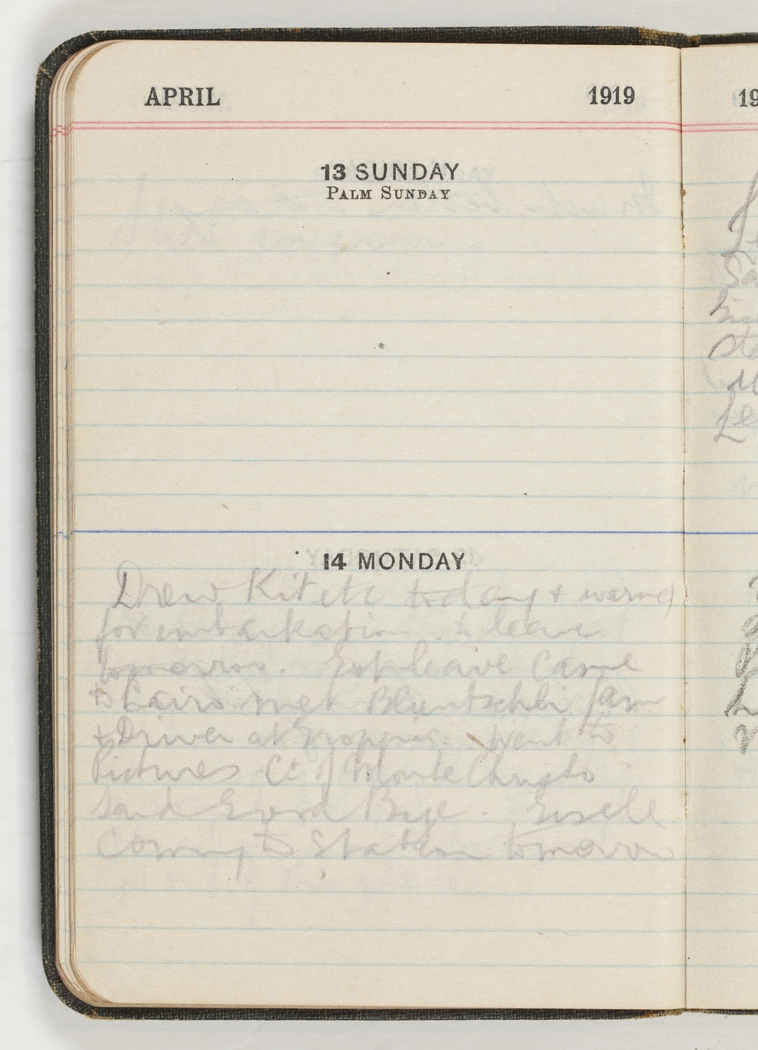 APRIL 1919
13 SUNDAY
PALM SUNDAY
14 MONDAY
Drew Kit etc today & warned
for embarkation. to leave
tomorrow. Got leave Came
to Cairo met Bluntschli
& Driver at Groppis. Went to
Pictures Ct of Monte Christo
Said Good Bye.
Coming to Station tomorrow
19